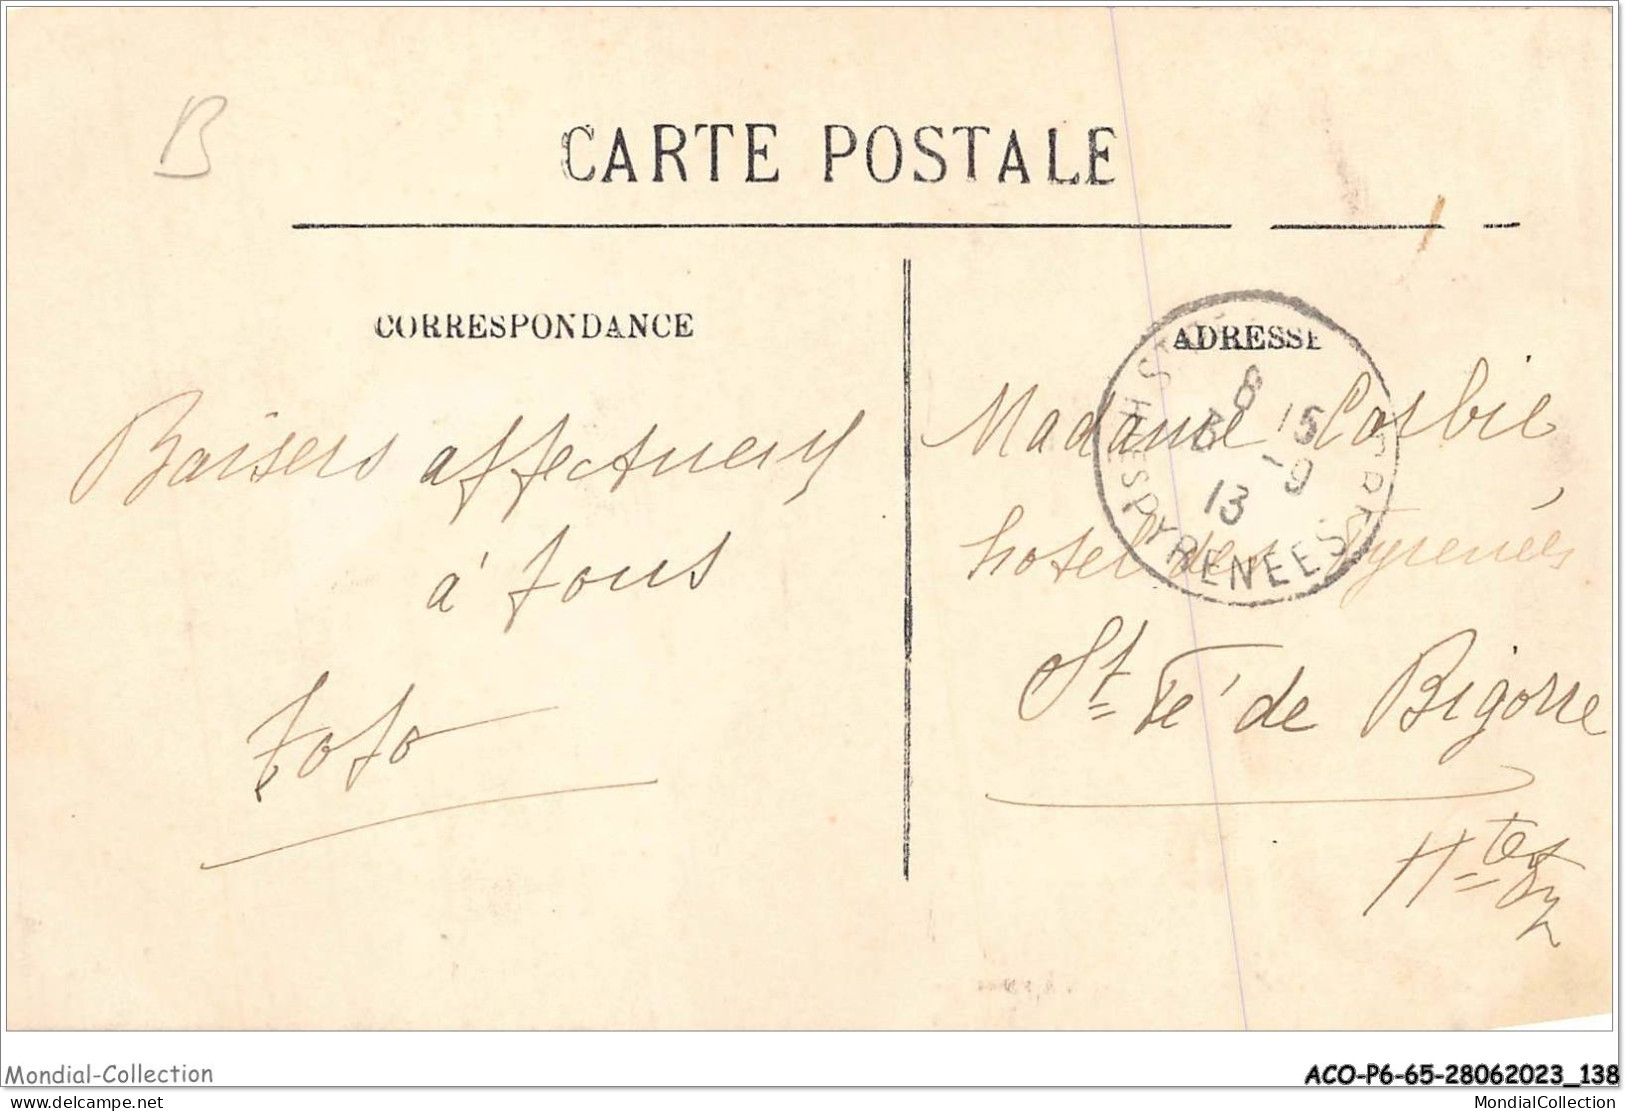 B
CARTE POSTALE
CORRESPONDANCE
Baisers affectueux
à tous
Toto
ADRESSE
Madame Corbie
hotel des Pyrenées
St Fé de Bigorre
Htes Py
8 15
3 -9
13
PYRENEES
Mondial-Collection
ACO-P6-65-28062023_138
www.delcampe.net
MondialCollection